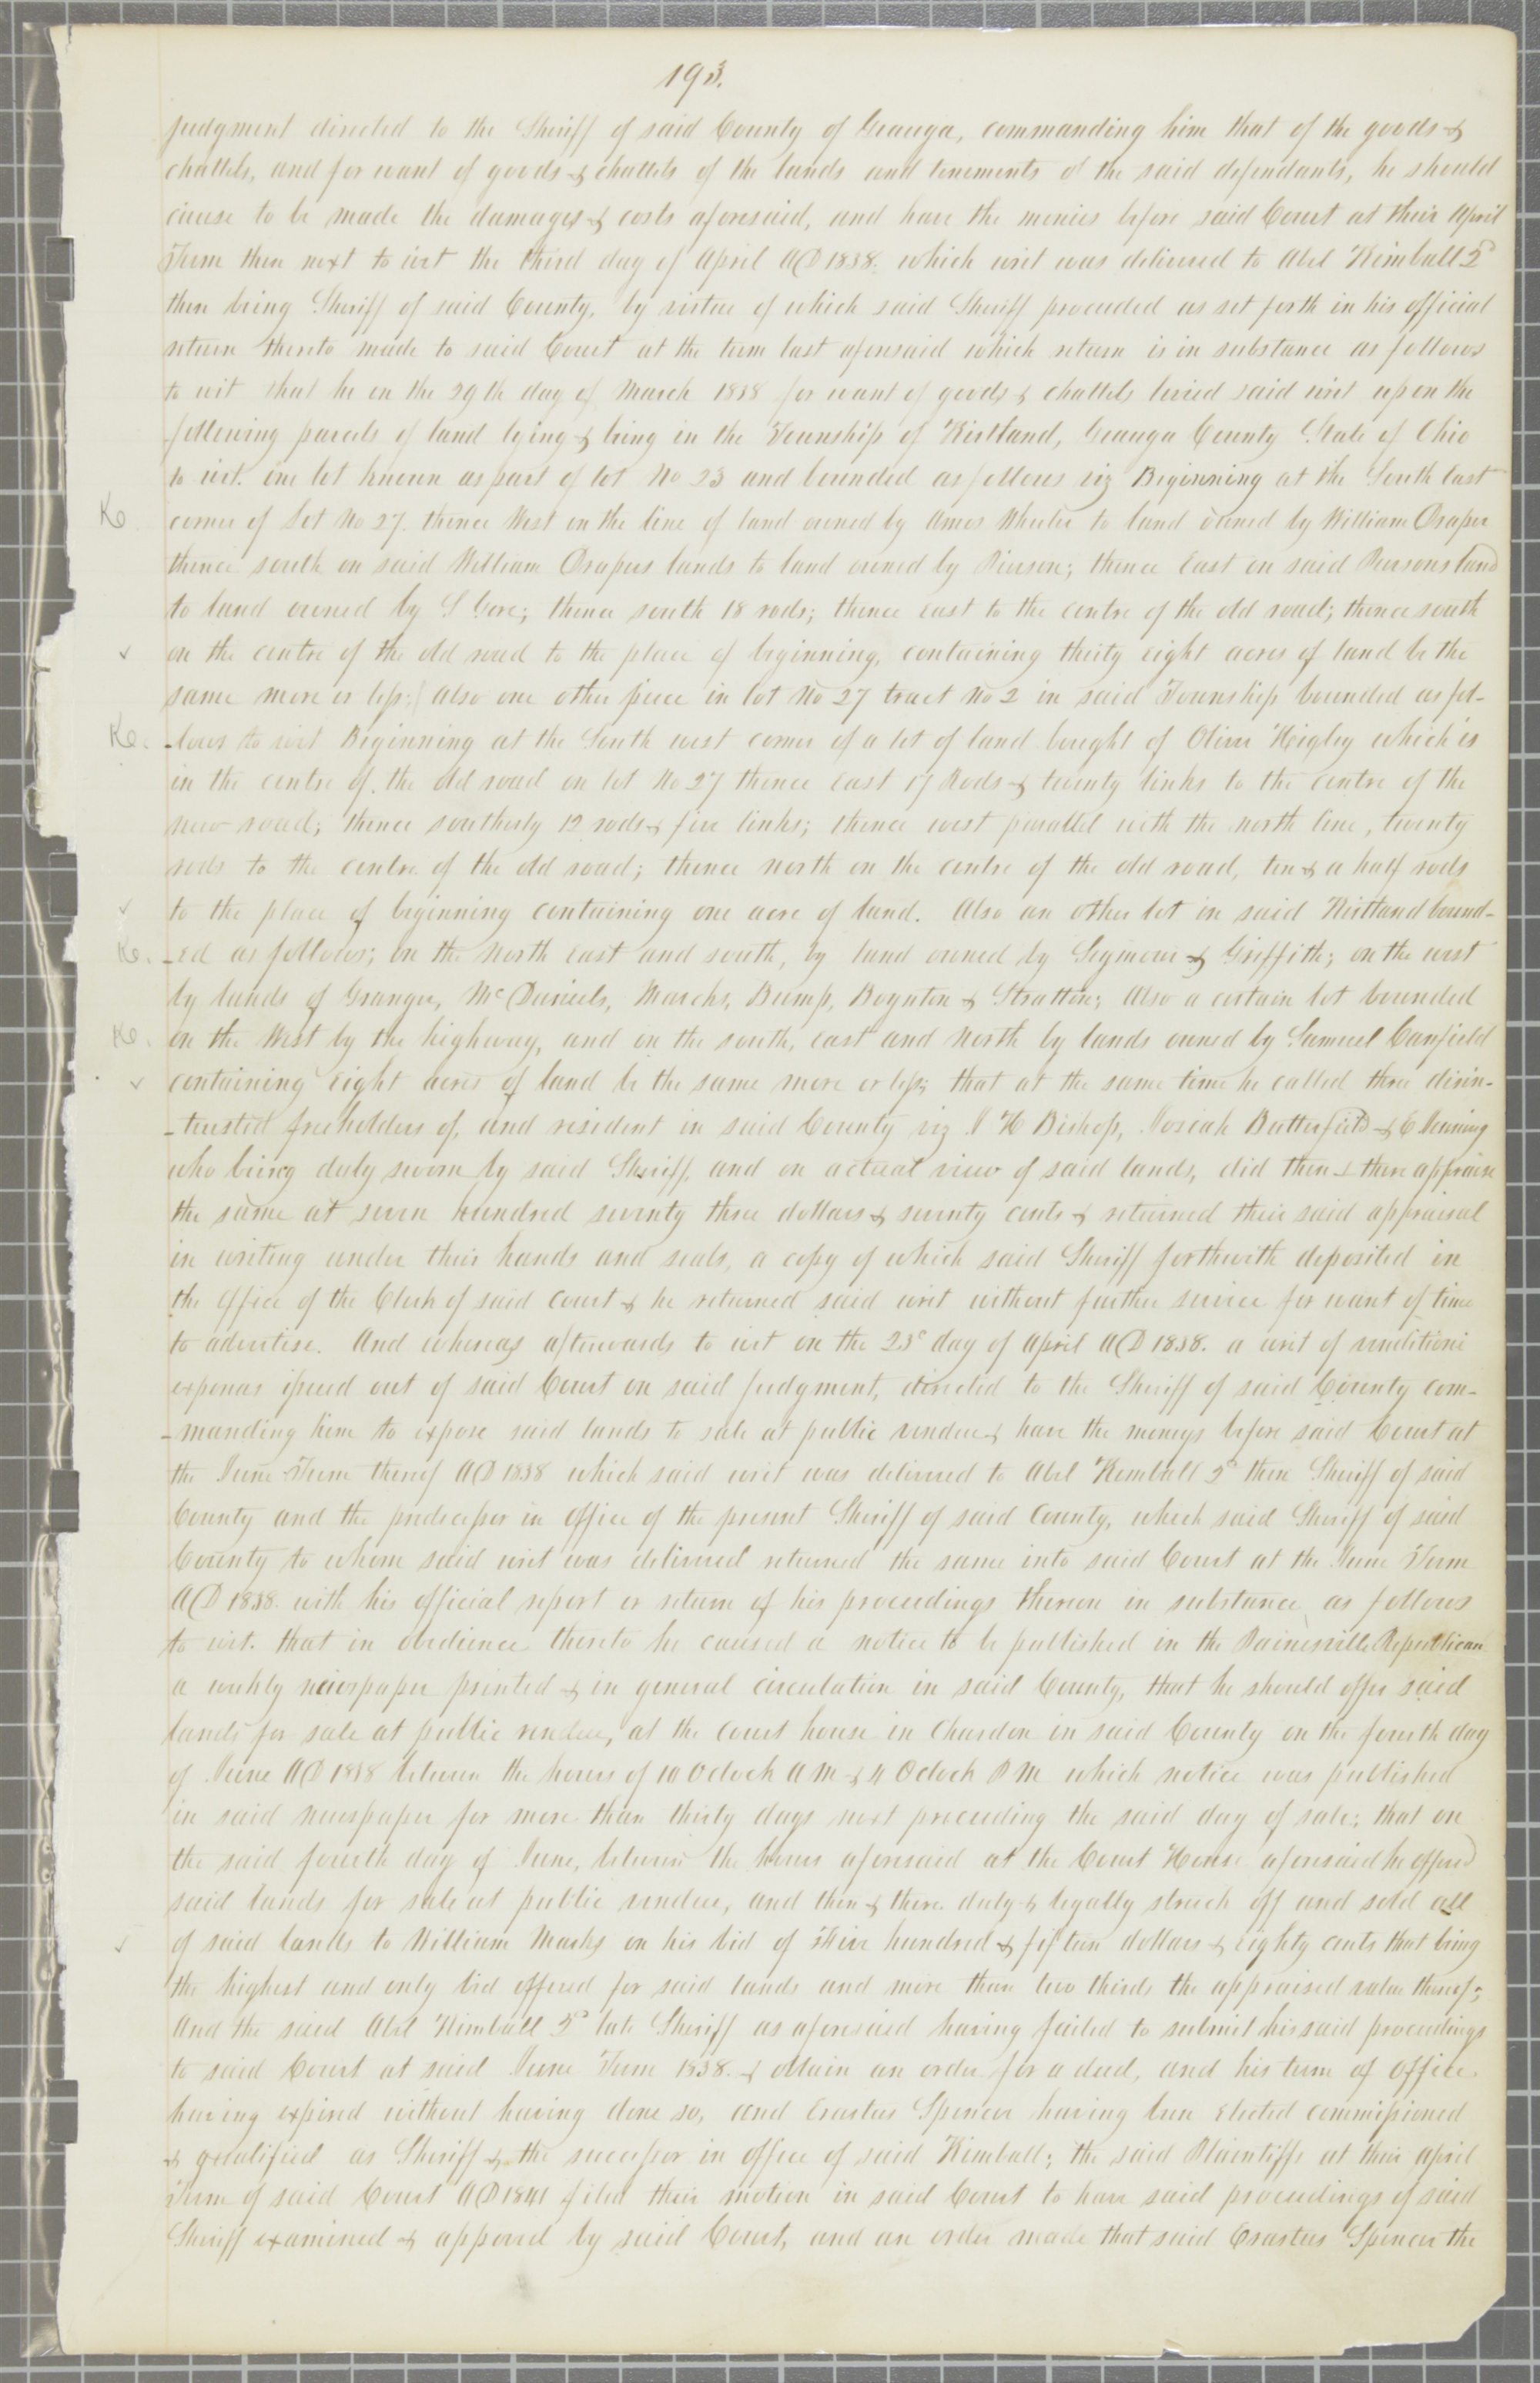 193.
judgment directed to the Sheriff of said County of Geauga, commanding him that of the goods &
chattels, and for want of goods & chattels of the lands and tenements of the said defendants, he should
cause to be made the damages & costs aforesaid, and have the monies before said Court at their April
Term then next to wit the third day of April AD 1838. which writ was delivered to Abel Kimball 2d
then being Sheriff of said County, by virtue of which said Sheriff proceeded as set forth in his official
return thereto made to said Court at the term last aforesaid which return is in substance as follows
to wit that he on the 29th day of March 1838 for want of goods & chattels levied said writ upon the
following parcels of land lying & being in the Township of Kirtland, Geauga County State of Ohio
to wit. one lot known as part of lot No 23 and bounded as follows viz Beginning at the South east
Ke. corner of Lot No 27. thence West on the line of land owned by Amos Wheeler to land owned by William Draper
thence south on said William Drapers lands to land owned by Pierson; thence East on said Piersons land
to land owned by S Gere; thence south 18 rods; thence east to the centre of the old road; thence south
✓ on the centre of the old road to the place of beginning, containing thirty eight acres of land be the
same more or less; also one other piece in lot No 27 tract No 2 in said Township bounded as fol-
Ke. -lows to wit Beginning at the South west corner of a lot of land bought of Oliver Higley which is
in the centre of the old road on lot No 27 thence east 17 Rods & twenty links to the centre of the
new road; thence southerly 12 rods & five links; thence west parallel with the north line, twenty
rods to the centre of the old road; thence north on the centre of the old road, ten & a half rods
✓ to the place of beginning containing one acre of land. Also an other lot in said Kirtland bound-
Ke. -ed as follows; on the north east and south, by land owned by Seymour & Griffith; on the west
by lands of Granger, McDaniels, Marcks, Bump, Boynton & Stratton; Also a certain lot bounded
Ke. on the West by the highway, and on the south, east and North by lands owned by Samuel Canfield
✓ containing eight acres of land be the same more or less; that at the same time he called three disin-
-terested freeholders of, and resident in said County viz I H Bishop, Josiah Butterfield & E
who being duly sworn by said Sheriff, and on actual view of said lands, did then & there appraise
the same at seven hundred seventy three dollars & seventy cents & returned their said appraisal
in writing under their hands and seals, a copy of which said Sheriff forthwith deposited in
the office of the Clerk of said court & he returned said writ without further service for want of time
to advertise. And whereas afterwards to wit on the 23d day of April AD 1838. a writ of venditioni
exponas issued out of said Court on said judgment, directed to the Sheriff of said County com-
-manding him to expose said lands to sale at public vendue & have the moneys before said Court at
the June Term thereof AD 1838 which said writ was delivered to Abel Kimball 2d then Sheriff of said
County and the predecessor in office of the present Sheriff of said County, which said Sheriff of said
County to whom said writ was delivered returned the same into said Court at the June Term
AD 1838. with his official report or return of his proceedings thereon in substance as follows
to wit. that in obedience thereto he caused a notice to be published in the Painesville Republican
a weekly newspaper printed & in general circulation in said County, that he should offer said
lands for sale at public vendue, at the court house in Chardon in said County on the fourth day
of June AD 1838 between the hours of 10 Oclock A M & 4 Oclock P M which notice was published
in said newspaper for more than thirty days next preceeding the said day of sale; that on
the said fourth day of June, between the hours aforesaid at the Court House aforesaid he offered
said lands for sale at public vendue, and then & there duly & legally struck off and sold all
✓ of said lands to William Marks on his bid of Five hundred & fifteen dollars & eighty cents that being
the highest and only bid offered for said lands and more than two thirds the appraised value thereof;
And the said Abel Kimball 2d late Sheriff as aforesaid having failed to submit his said proceedings
to said Court at said June Term 1838. & obtain an order for a deed, and his term of office
having expired without having done so, and Erastus Spencer having been elected commissioned
& qualified as Sheriff & the successor in office of said Kimball; the said Plaintiffs at their April
Term of said Court AD 1841 filed their motion in said Court to have said proceedings of said
Sheriff examined & approved by said Court, and an order made that said Erastus Spencer the